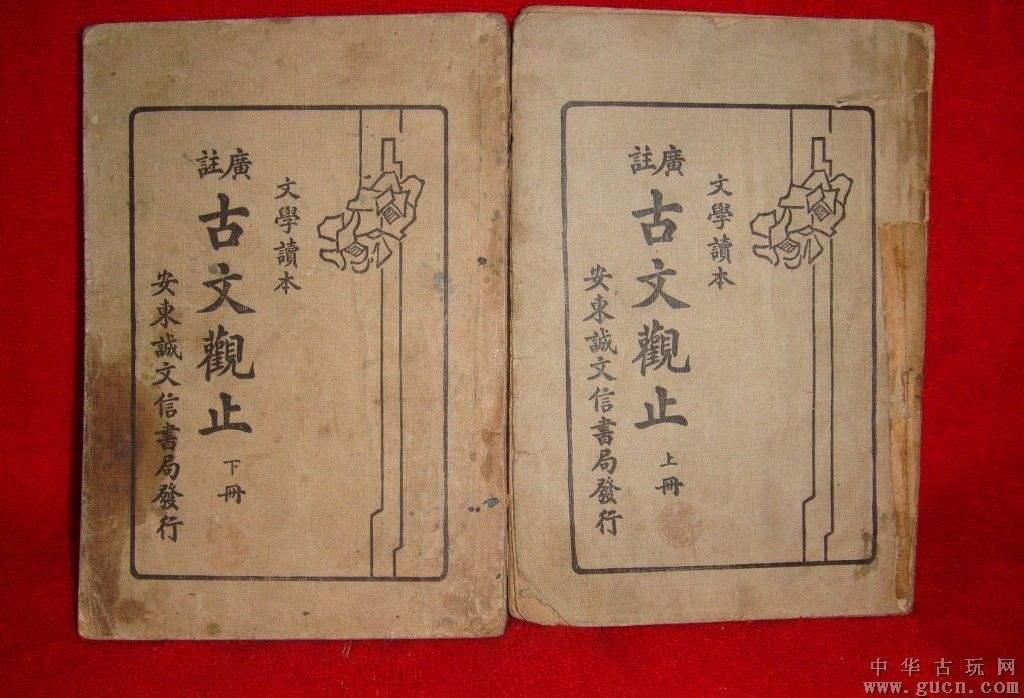 文學讀本
廣註
古文觀止
下冊
安東誠文信書局發行
文學讀本
廣註
古文觀止
上冊
安東誠文信書局發行
中华古玩网
www.gucn.com